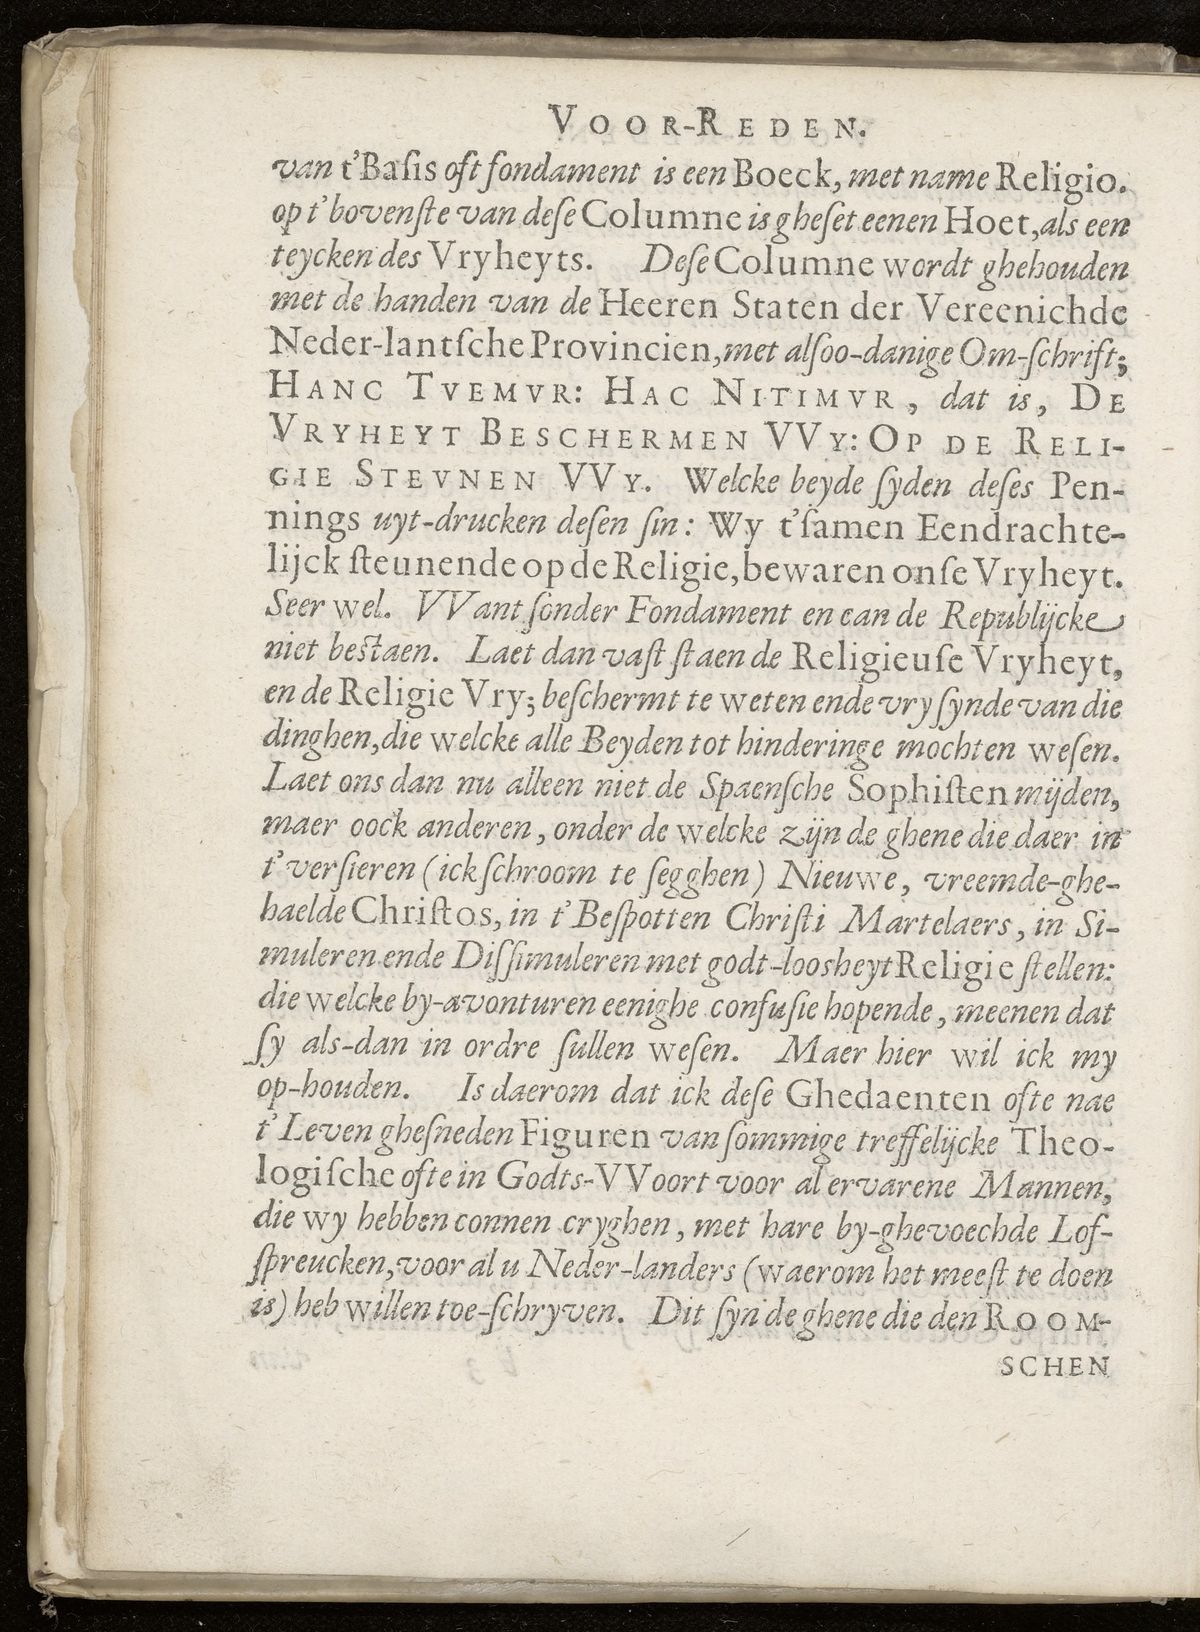 VOOR-REDEN.
van t'Baſis oft fondament is een Boeck, met name Religio.
op t'bovenſte van deſe Columne is gheſet eenen Hoet, als een
teycken des Vryheyts. Deſe Columne wordt ghehouden
met de handen van de Heeren Staten der Vereenichde
Neder-lantſche Provincien, met alſoo-danige Om-ſchrift;
HANC TVEMVR: HAC NITIMVR, dat is, DE
VRYHEYT BESCHERMEN VVY: OP DE RELI-
GIE STEVNEN VVY. Welcke beyde ſyden deſes Pen-
nings uyt-drucken deſen ſin: Wy t'ſamen Eendrachte-
lijck ſteunende op de Religie, bewaren onſe Vryheyt.
Seer wel. VVant ſonder Fondament en can de Republijcke
niet beſtaen. Laet dan vaſt ſtaen de Religieuſe Vryheyt,
en de Religie Vry; beſchermt te weten ende vry ſynde van die
dinghen, die welcke alle Beyden tot hinderinge mochten weſen.
Laet ons dan nu alleen niet de Spaenſche Sophiſten mijden,
maer oock anderen, onder de welcke zijn de ghene die daer in
t'verſieren (ick ſchroom te ſegghen) Nieuwe, vreemde-ghe-
haelde Chriſtos, in t'Beſpotten Chriſti Martelaers, in Si-
muleren ende Diſſimuleren met godt-loosheyt Religie ſtellen:
die welcke by-avonturen eenighe confuſie hopende, meenen dat
ſy als-dan in ordre ſullen weſen. Maer hier wil ick my
op-houden. Is daerom dat ick deſe Ghedaenten ofte nae
t'Leven gheſneden Figuren van ſommige treffelijcke Theo-
logiſche ofte in Godts-VVoort voor al ervarene Mannen,
die wy hebben connen cryghen, met hare by-ghevoechde Lof-
ſpreucken, voor al u Neder-landers (waerom het meeſt te doen
is) heb willen toe-ſchryven. Dit ſyn de ghene die den ROOM-
SCHEN